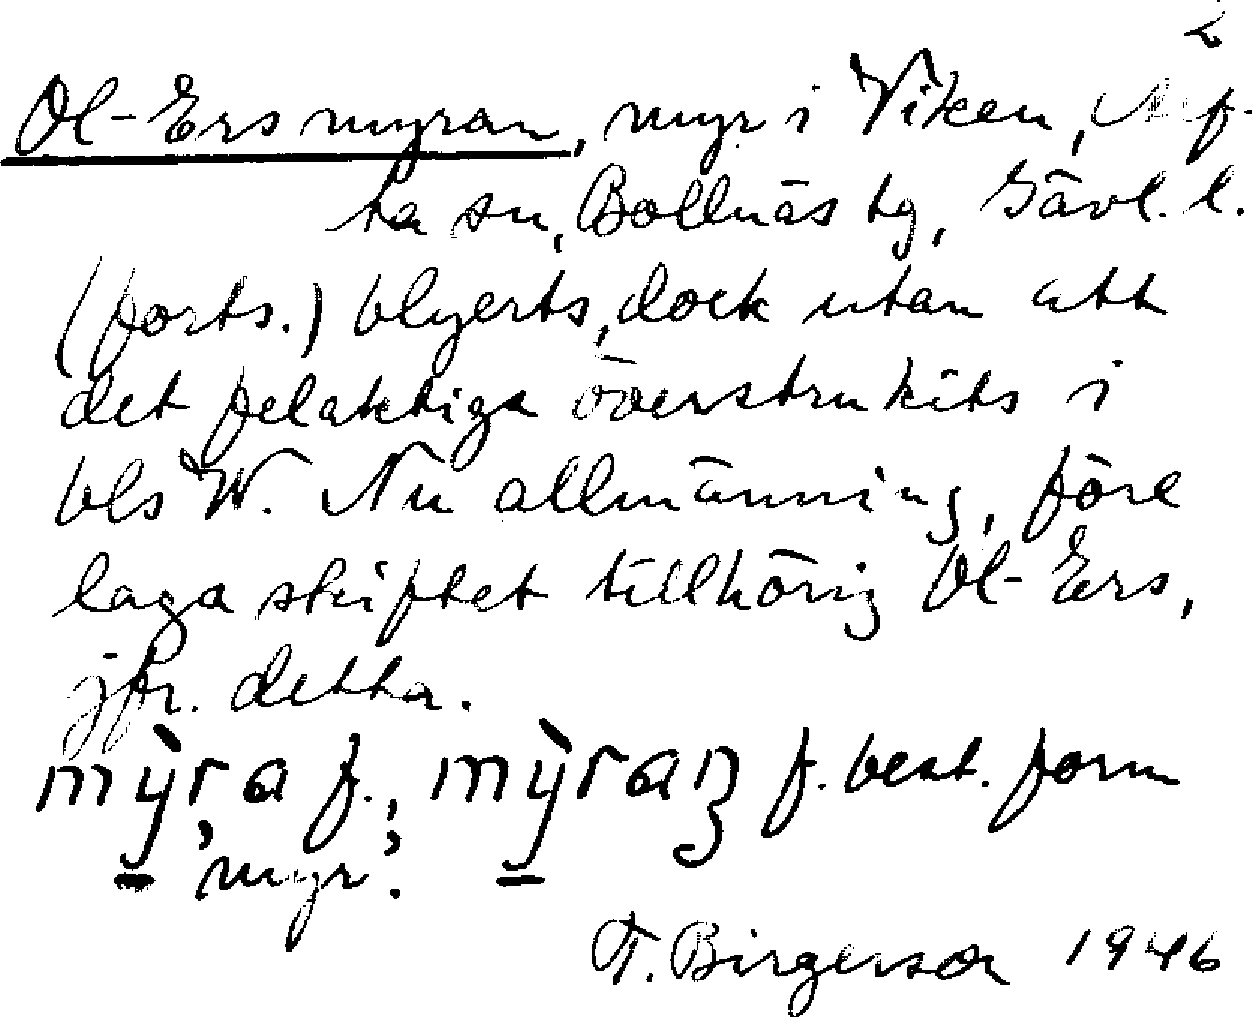 2
Ol-Ersmyran, myr i Viken, Alf-
ta sn, Bollnäs tg, Gävl. l.
(forts.) blyerts, dock utan att
det felaktiga överstrukits i
bls W. Nu allmänning, före
laga skiftet tillhörig Ol-Ers,
jfr. detta.
mỳra f., mỳran f. best. form
myr.
T. Birgerson 1946